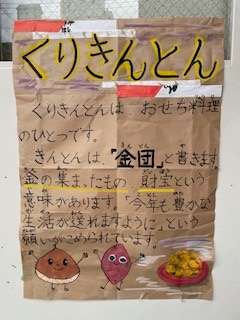 くりきんとん
くりきんとんは、おせち料理
のひとつです。
きんとんは、「金団」と書きます。
金の集まったもの 財宝という
意味があります。「今年も豊かな
生活が送れますように」という
願いがこめられています。